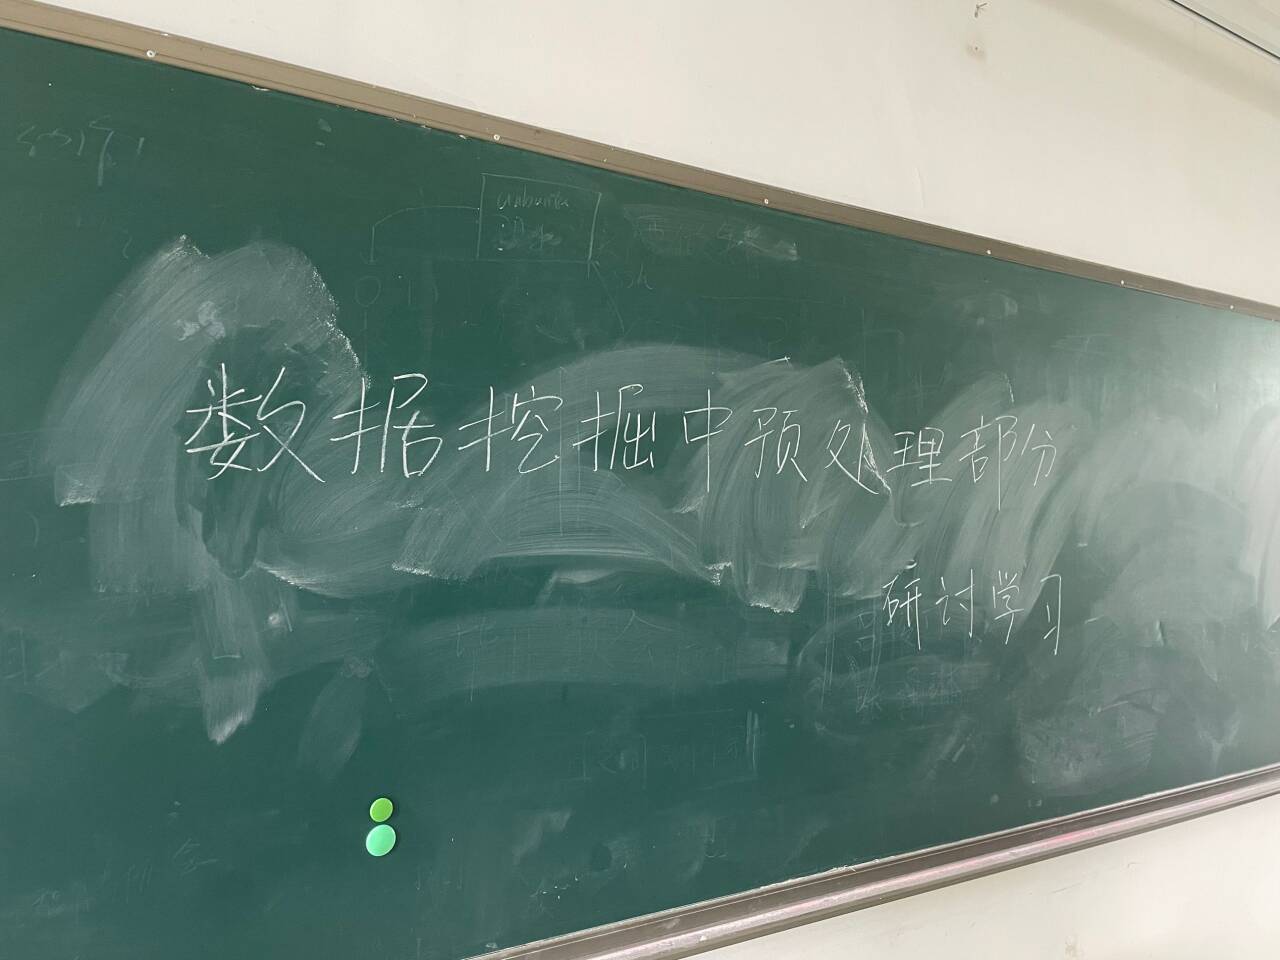 数据挖掘中预处理部分
研讨学习